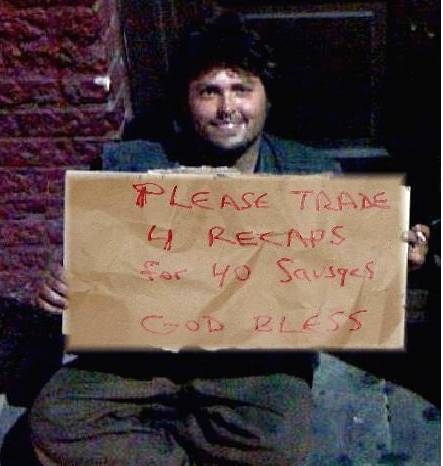 PLEASE TRADE
4 RECAPS
for 40 Sausges
GOD BLESS